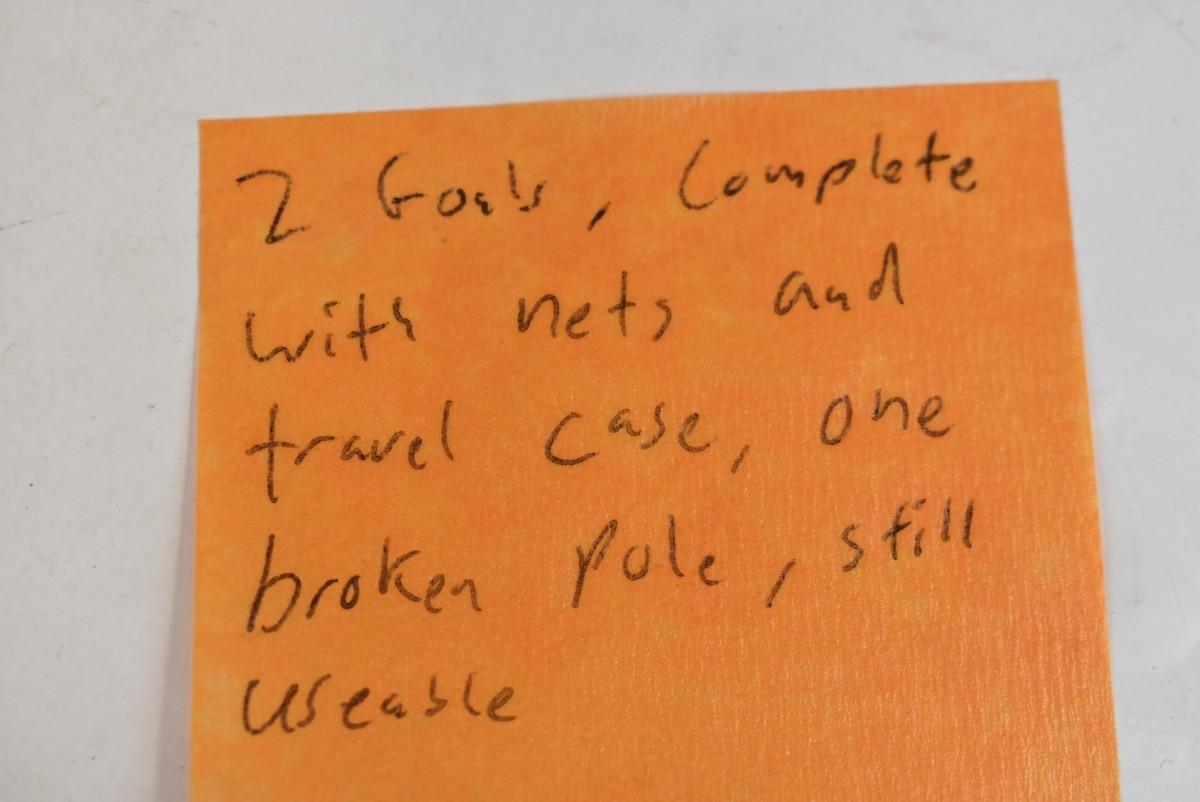 2 Goals, Complete
with nets and
travel case, one
broken pole, still
useable